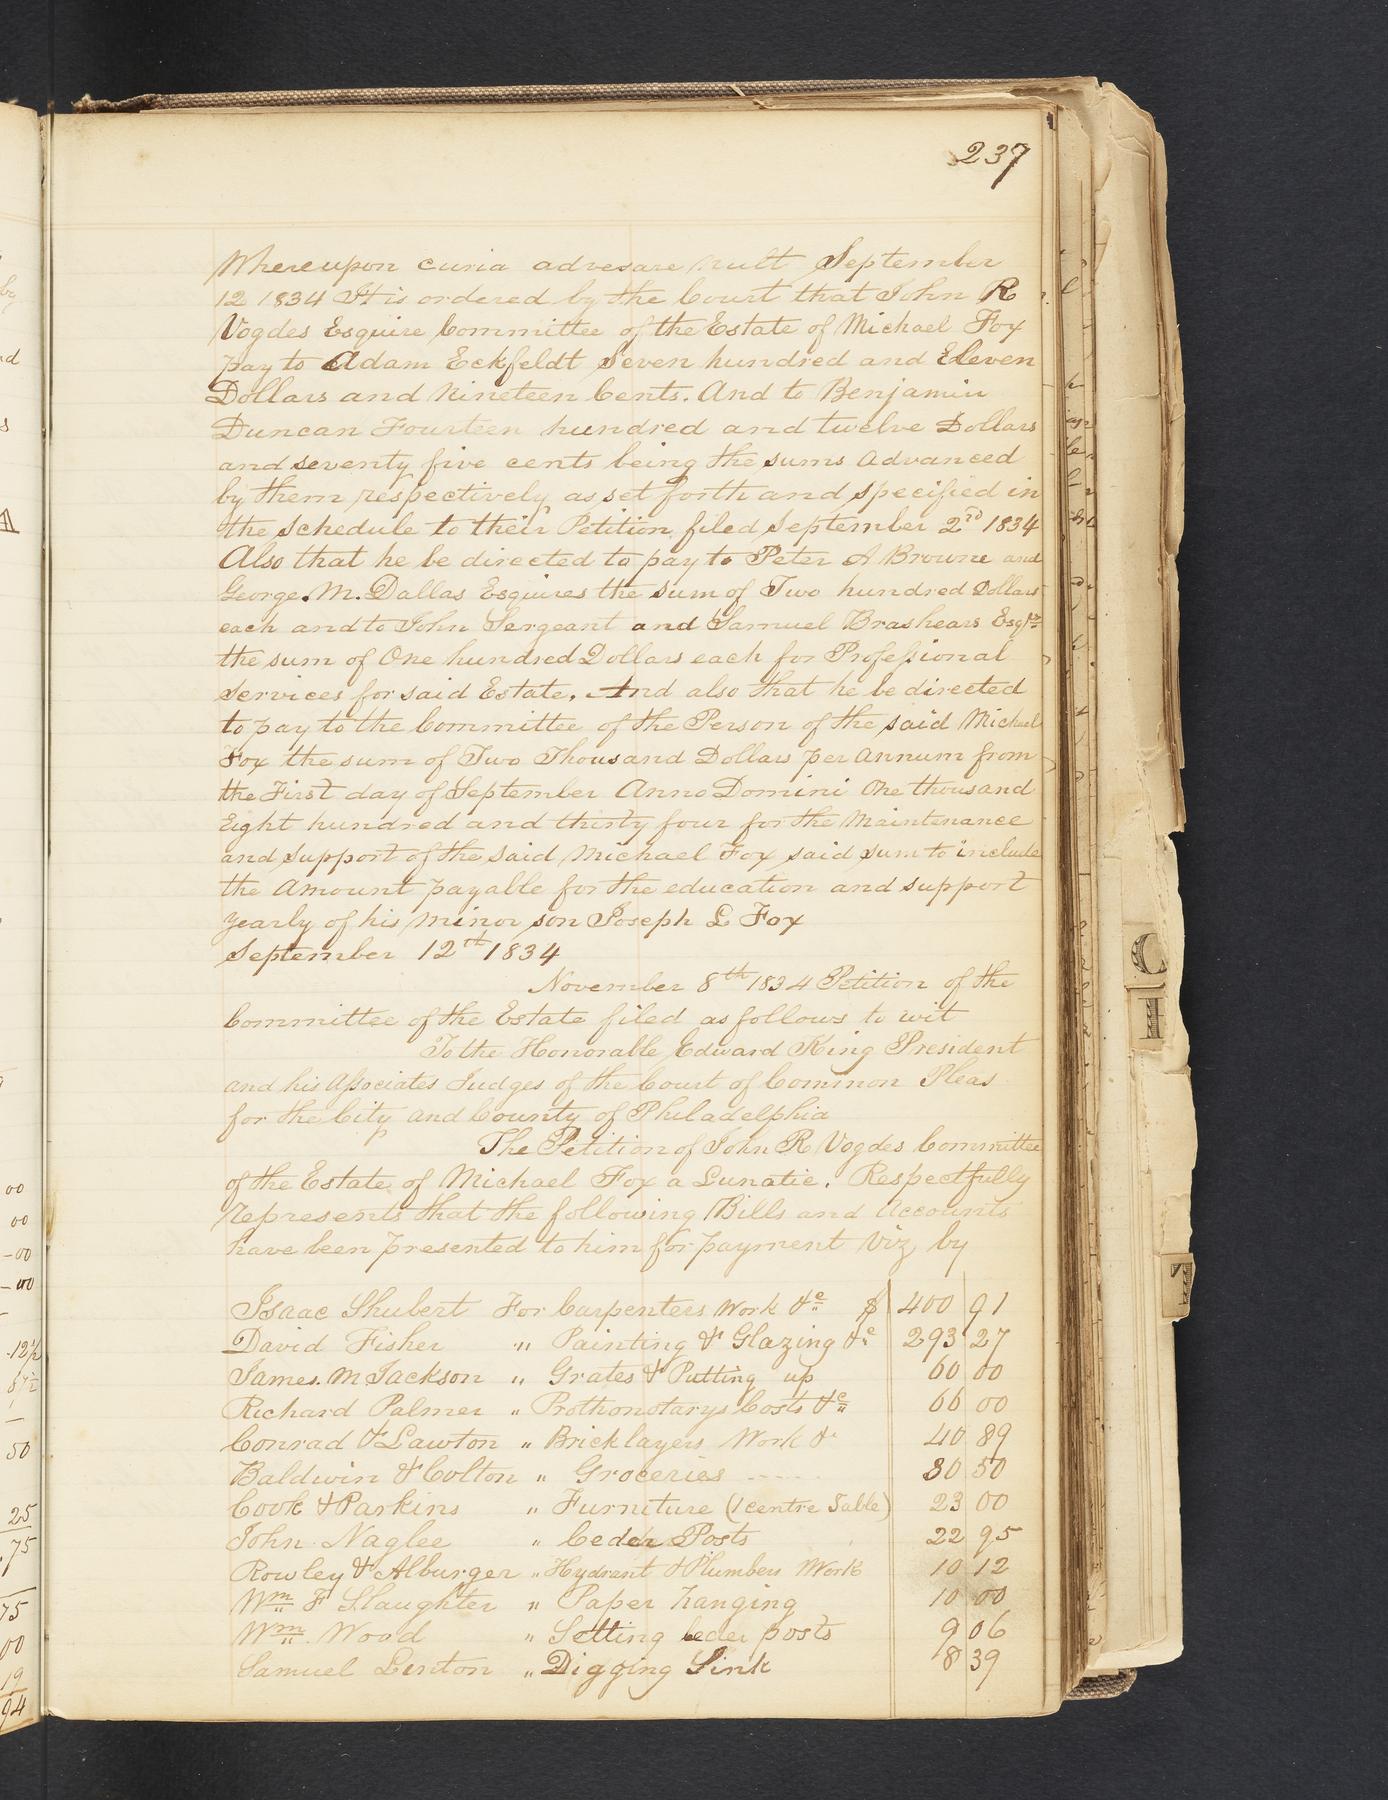 237
Whereupon curia advesare vult September
12 1834 It is ordered by the Court that John R
Vogdes Esquire Committee of the Estate of Michael Fox
pay to Adam Eckfeldt Seven hundred and Eleven
Dollars and Nineteen Cents. And to Benjamin
Duncan Fourteen hundred and twelve Dollars
and seventy five cents being the sums advanced
by them respectively as set forth and specified in
the schedule to their Petition filed September 2nd 1834
Also that he be directed to pay to Peter A Browne and
George. M. Dallas Esquires the sum of Two hundred Dollars
each and to John Sergeant and Samuel Brashears Esqrs
the sum of One hundred Dollars each for Professional
services for said Estate. And also that he be directed
to pay to the Committee of the Person of the said Michael
Fox the sum of Two Thousand Dollars per annum from
the First day of September Anno Domini One thousand
Eight hundred and thirty four for the Maintenance
and support of the said Michael Fox said sum to include
the amount payable for the education and support
yearly of his minor son Joseph L Fox
September 12th 1834
November 8th 1834 Petition of the
Committee of the Estate filed as follows to wit
To the Honorable Edward King President
and his Associates Judges of the Court of Common Pleas
for the City and County of Philadelphia
The Petition of John R Vogdes Committee
of the Estate of Michael Fox a Lunatic. Respectfully
represents that the following Bills and Accounts
have been presented to him for payment Viz by
Isaac Shubert For Carpenters Work &c $ 400 91
David Fisher " Painting & Glazing &c 293 27
James. M Jackson " Grates & Putting up 60 00
Richard Palmer " Prothonotarys Costs &c 66 00
Conrad & Lawton " Bricklayers Work & 40 89
Baldwin & Colton " Groceries ----- 30 50
Cook & Parkins " Furniture (1 centre Table) 23 00
John Naglee " Ceder Posts 22 95
Rowley & Alburger " Hydrant & Plumbers Work 10 12
Wm F Slaughter " Paper hanging 10 00
Wm. Wood " Setting ceder posts 9 06
Samuel Linton " Digging Sink 8 39